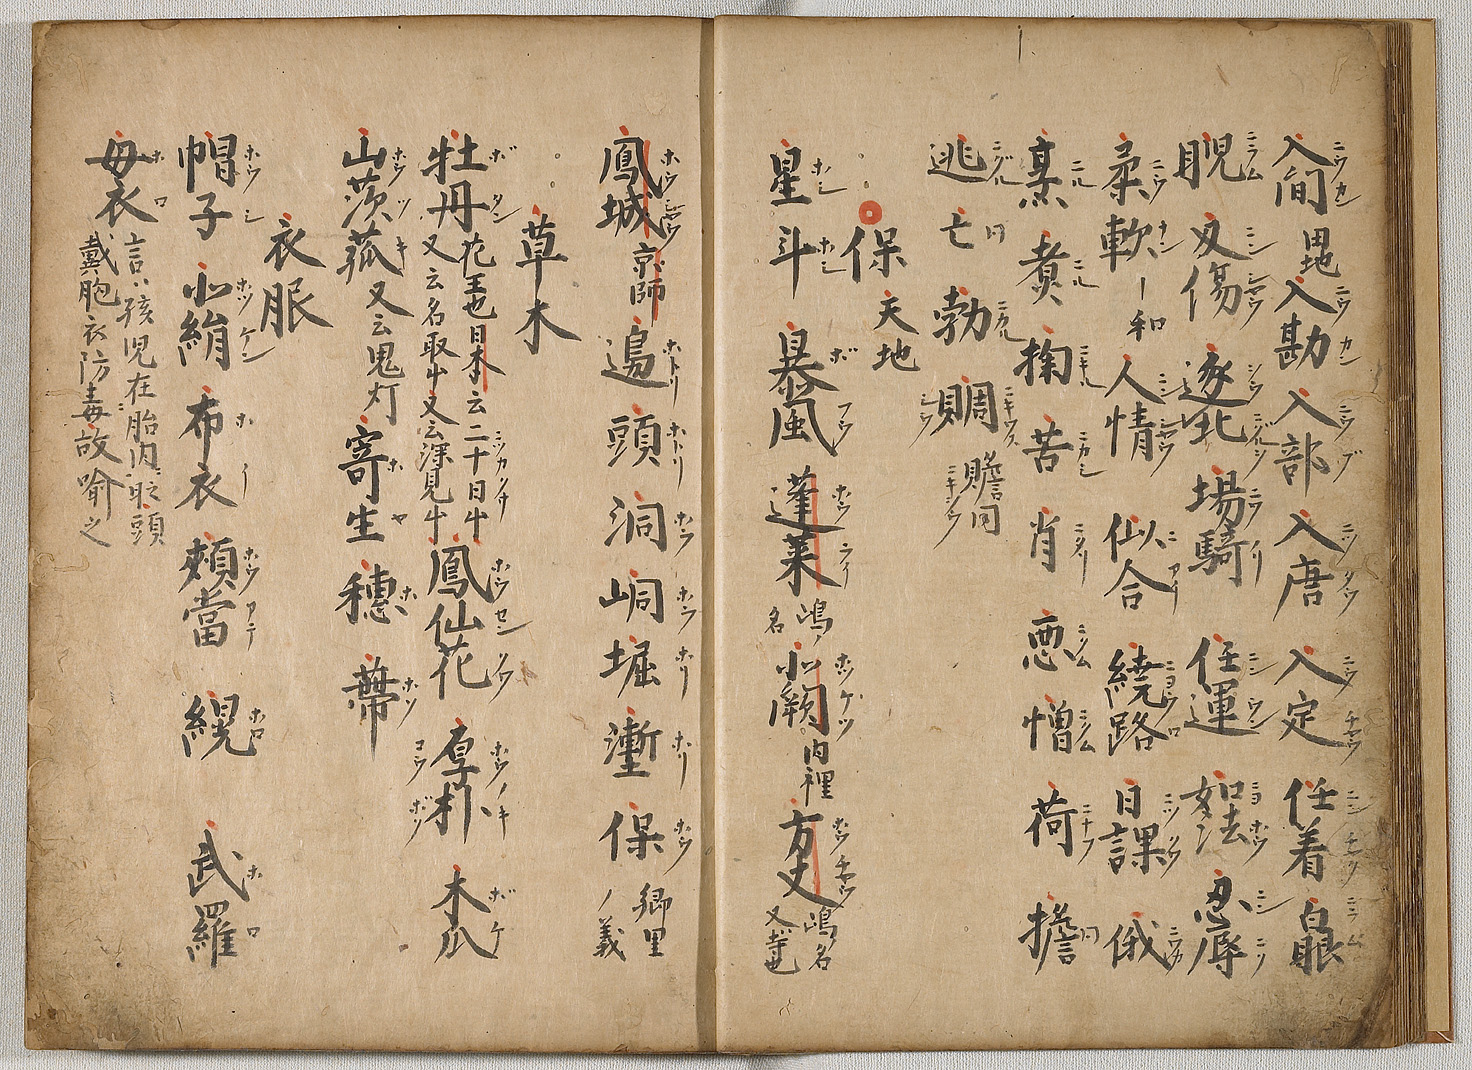 入間 ニウカン 地 入勘 ニウカン 入部 ニウブ 入唐 ニツタウ 入定 ニウチヤウ 任着 ニンチヤク 白眼 ニラム
睨 ニラム 刃傷 ニンシヤウ 逐北 ニグル 場騎 ニワノリ 任運 ニンウン 如法 ニヨホウ 忍辱 ニンニク
柔軟 ニウナン ｜和 人情 ニンシヤウ 似合 ニアイ 繞路 ニヨウロ 日課 ニツクワ 俄 ニワカ
烹 ニル 煮 ニル 掬 ニキル 苦 ニカシ 肖 ニタリ 悪 ニクム 憎 ニクム 荷 ニナフ 擔 同
逃 ニグル 亡 同 勃 賙 ニキワウ 贍 同 ニキワウ
保 天地
星 ホシ 斗 ホシ 暴風 ボフウ 蓬莱 ホウライ 嶋ノ名 北闕 ホツケツ 内裡 方丈 ホウチヤウ 嶋名 又寺也
鳳城 ホウシヤウ 京師 邊 ホトリ 頭 ホトリ 洞 ホラ 峒 ホラ 堀 ホリ 塹 ホリ 保 ホウ 郷里ノ義
草木
牡丹 ボタン 花王也 日本云二十日草 ハツカクサ 又云名取草 又云深見草 鳳仙花 ホウセンクワ 厚朴 ホウノキ コウボク 木瓜 ボケ
山茨菰 ホウツキ 又云鬼灯 寄生 ホヤ 穂 ホ 蔕 ホソ
衣服
帽子 ホウシ 北絹 ホツケン 布衣 ホイ 頬當 ホウアテ 縨 ホロ 武羅 ホロ
母衣 ホロ 言ハ孩児在胎内時頭戴胞衣防毒故喩之